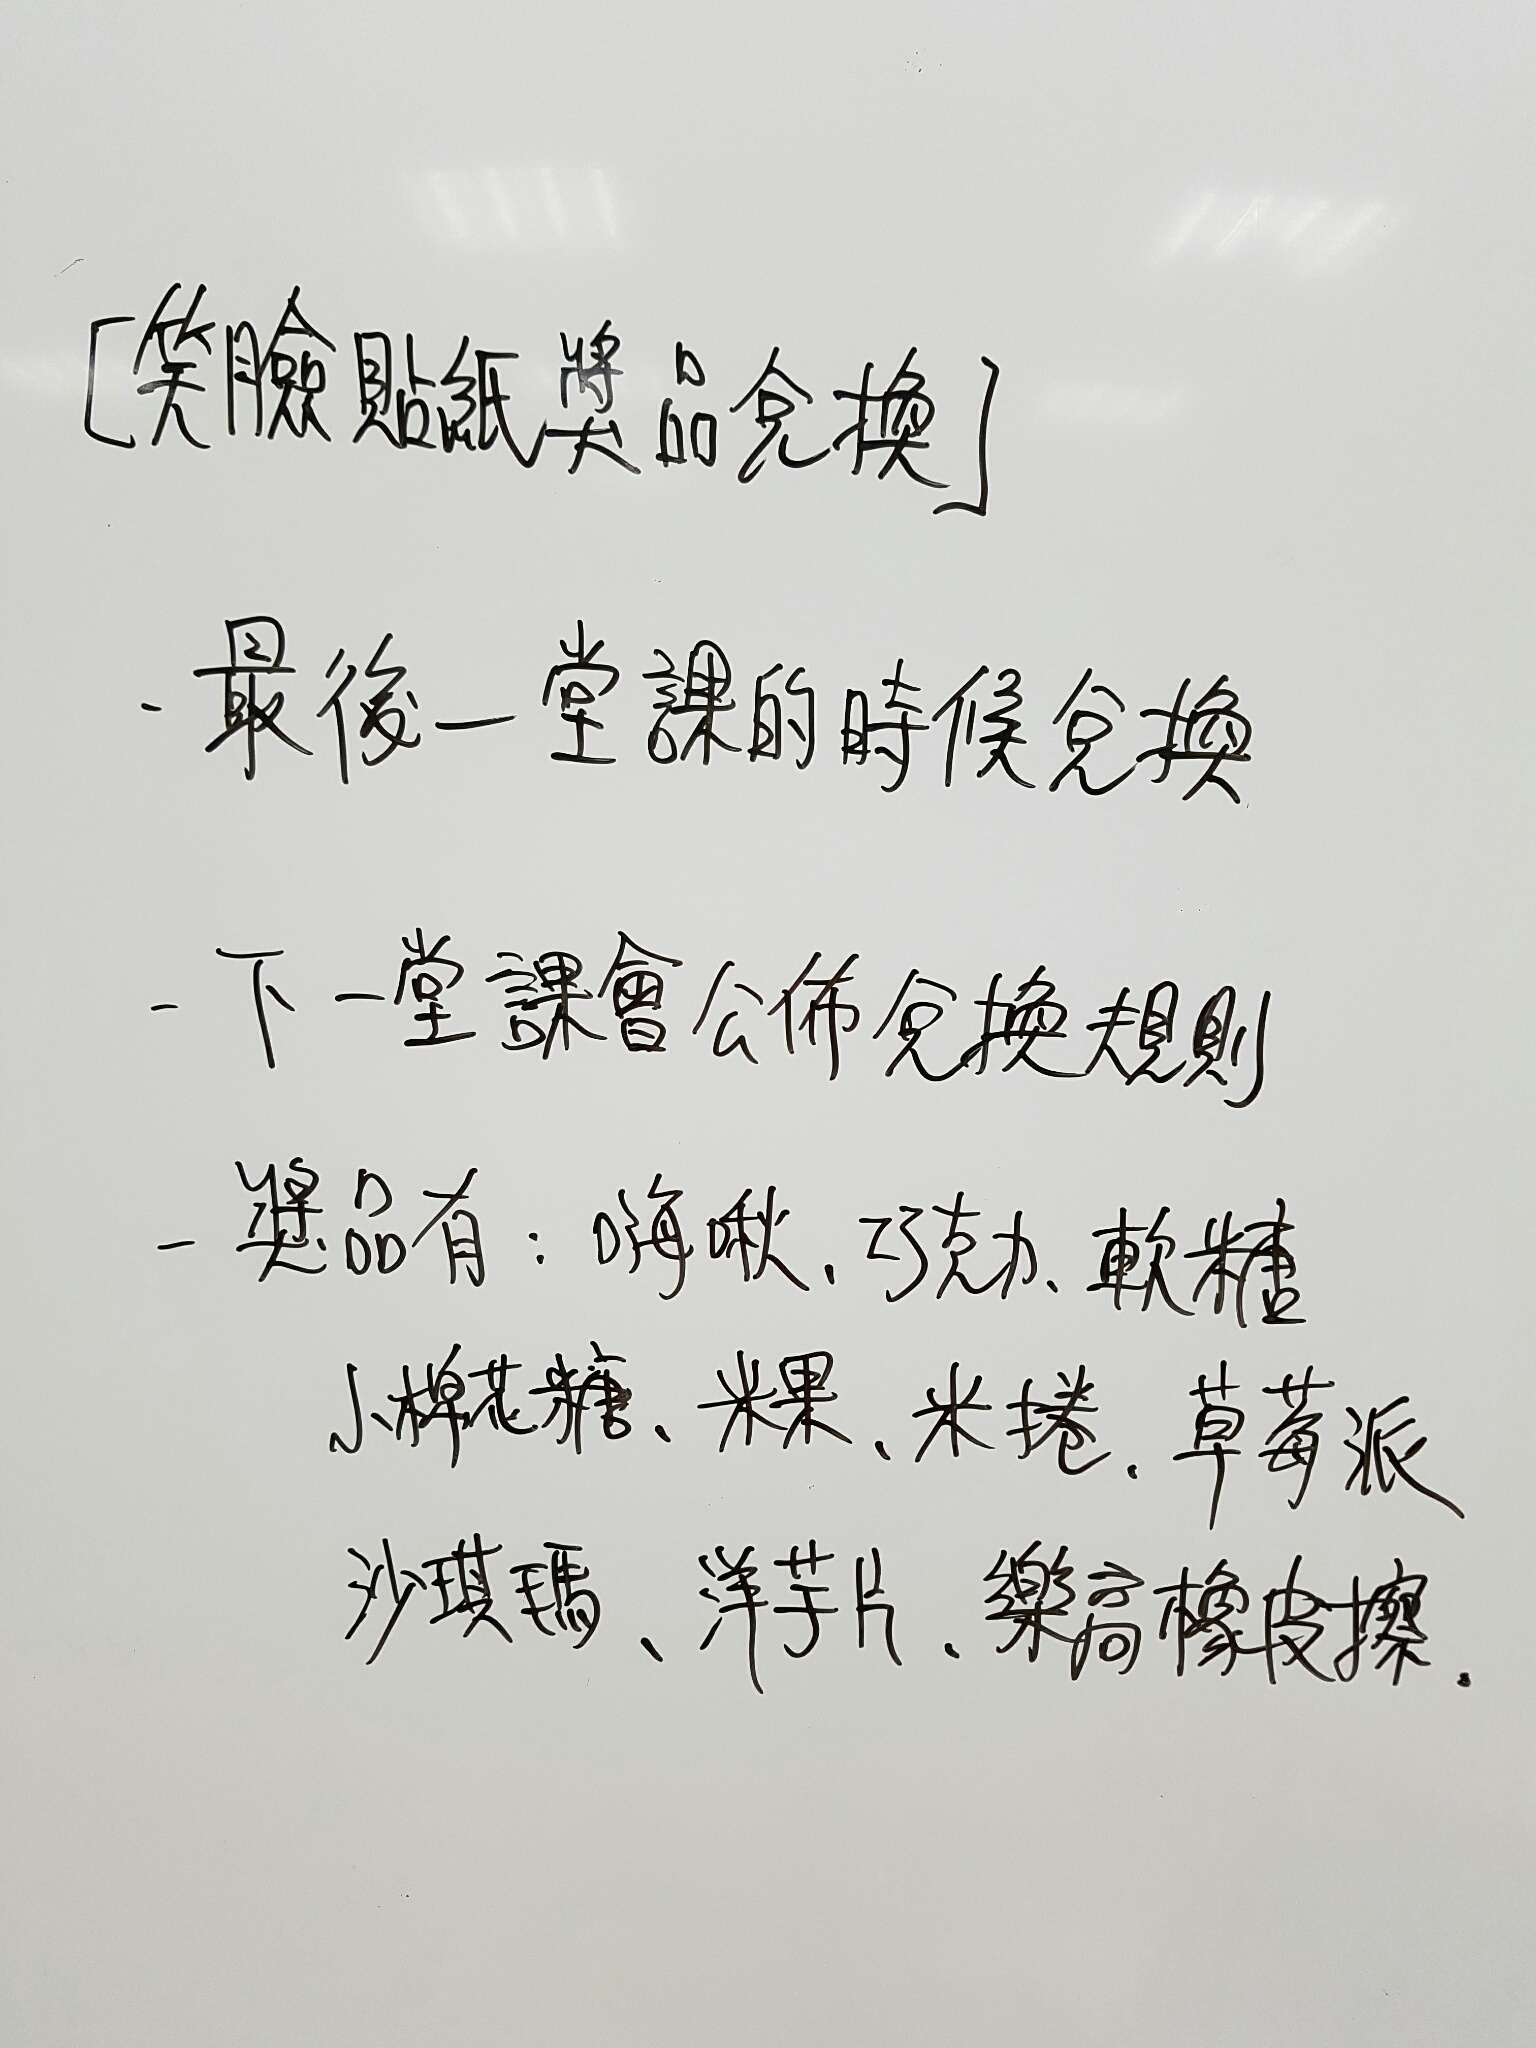 [笑臉貼紙獎品兌換]
- 最後一堂課的時候兌換
- 下一堂課會公佈兌換規則
- 獎品有:嗨啾、巧克力、軟糖
小棉花糖、米果、米捲、草莓派
沙琪瑪、洋芋片、樂高橡皮擦.